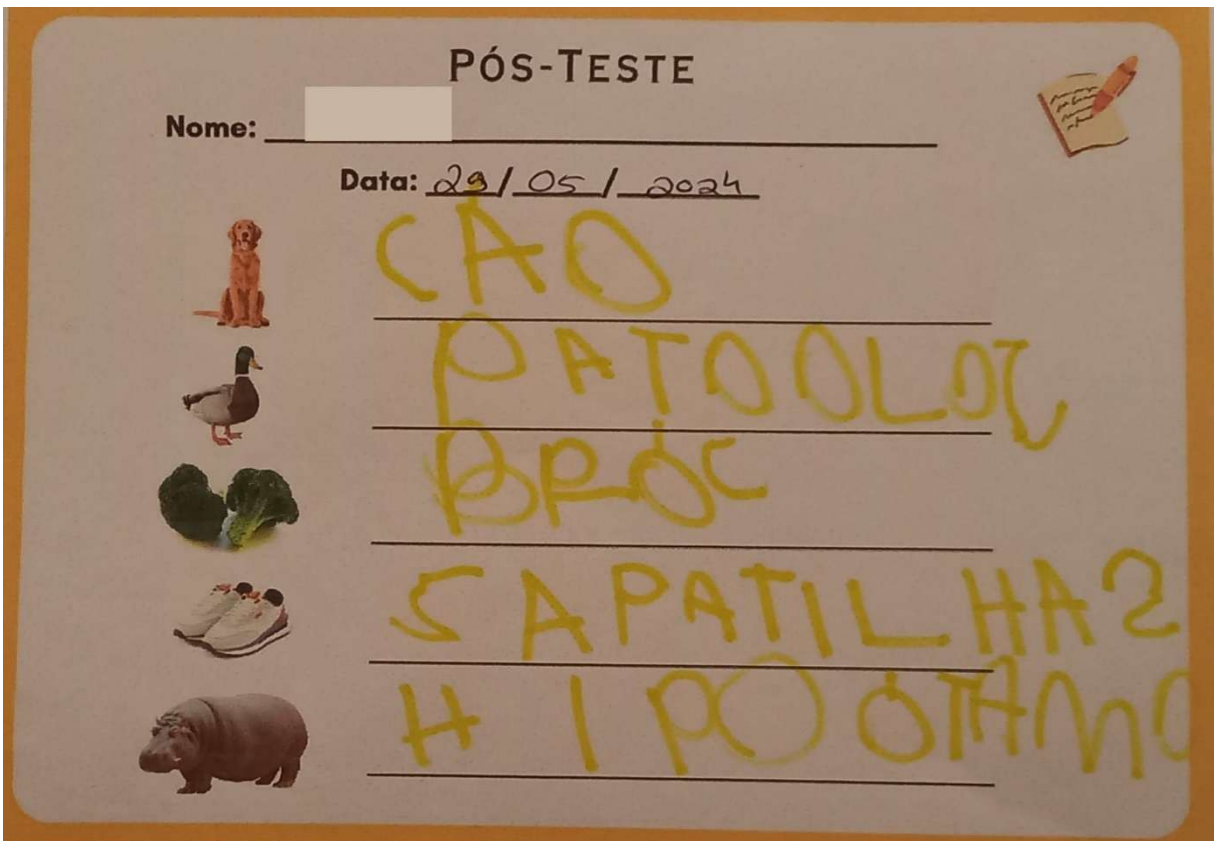 PÓS-TESTE
Nome:
Data: 29/05/2024
CÃO
PATO OLOS
BRÓC
SAPATILHAS
HIPOÓTAMO